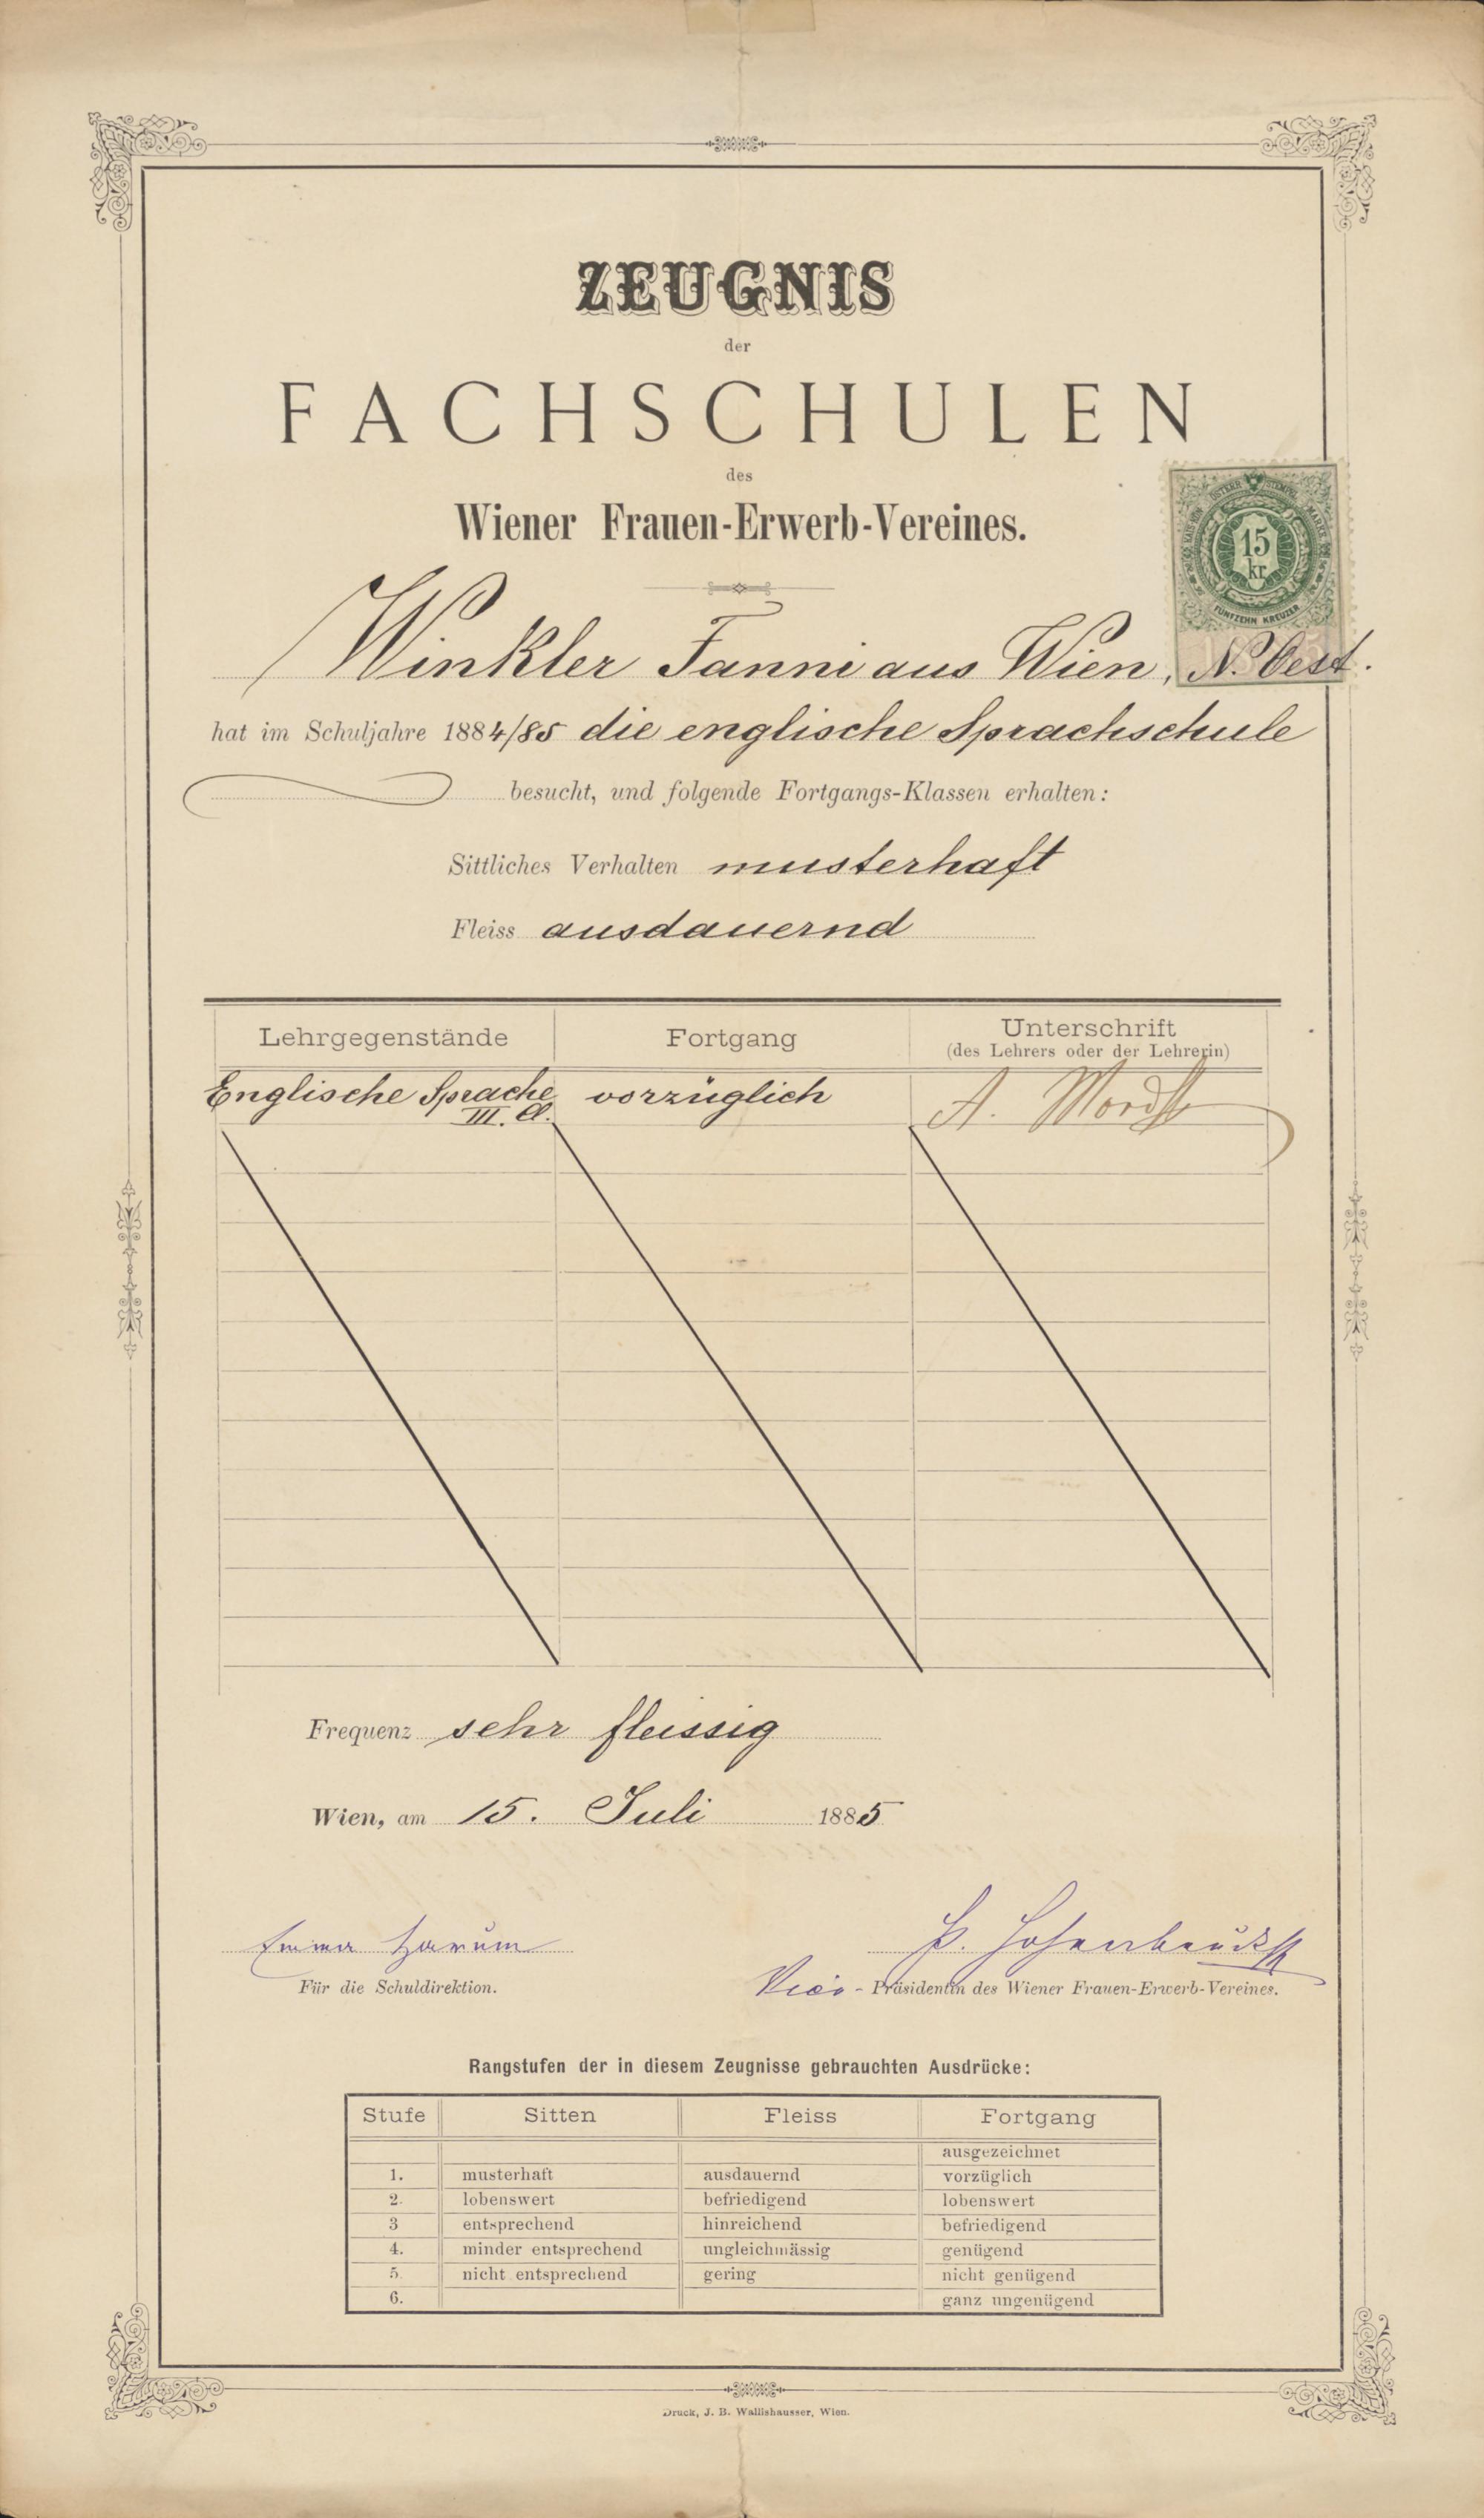 ZEUGNIS
der
FACHSCHULEN
des
Wiener Frauen-Erwerb-Vereines.
15
kr
FÜNFZEHN KREUZER
Winkler Fanni aus Wien, N. Oest.
hat im Schuljahre 1884/85 die englische Sprachschule
besucht, und folgende Fortgangs-Klassen erhalten:
Sittliches Verhalten musterhaft
Fleiss ausdauernd
Lehrgegenstände Fortgang Unterschrift
(des Lehrers oder der Lehrerin)
Englische Sprache vorzüglich A.
III. Cl.
Frequenz sehr fleissig
Wien, am 15. Juli 1885
Emma
Für die Schuldirektion.
Vice-Präsidentin des Wiener Frauen-Erwerb-Vereines.
Rangstufen der in diesem Zeugnisse gebrauchten Ausdrücke:
Stufe Sitten Fleiss Fortgang
ausgezeichnet
1. musterhaft ausdauernd vorzüglich
2. lobenswert befriedigend lobenswert
3 entsprechend hinreichend befriedigend
4. minder entsprechend ungleichmässig genügend
5. nicht entsprechend gering nicht genügend
6. ganz ungenügend
Druck, J. B. Wallishausser, Wien.